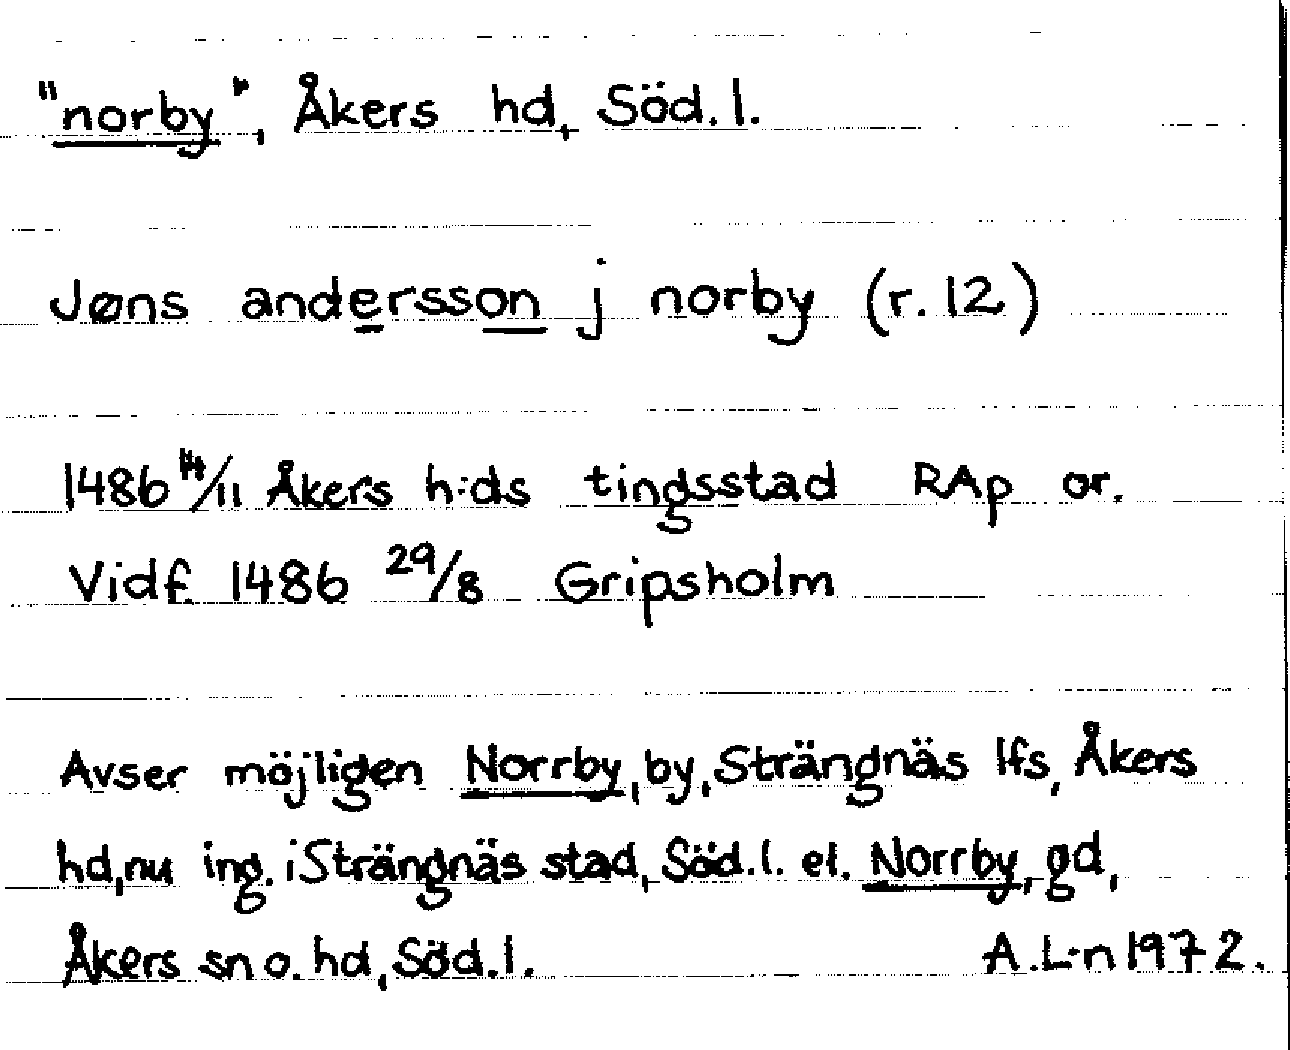 "norby", Åkers hd, Söd.l.
Jøns andersson j norby (r.12)
1486 14/11 Åkers h:ds tingsstad RAp or.
Vidf 1486 29/8 Gripsholm
Avser möjligen Norrby, by, Strängnäs lfs, Åkers
hd, nu ing. i Strängnäs stad, Söd.l. el. Norrby, gd,
Åkers sn o. hd, Söd.l. A.L-n 1972.